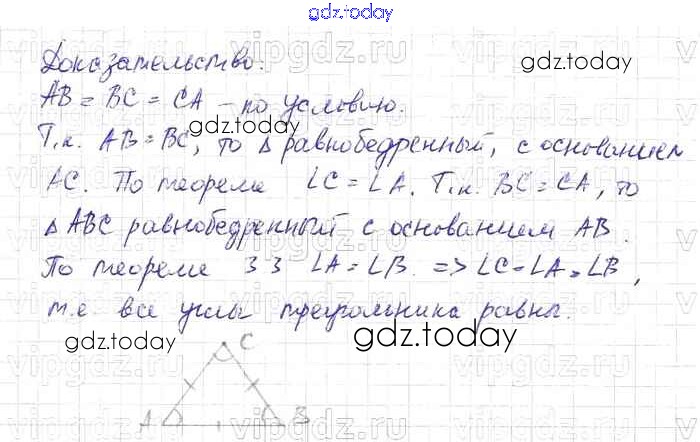 gdz.today
Доказательство:
gdz.today
AB = BC = CA – по условию.
gdz.today
Т.к. AB = BC, то Δ равнобедренный, с основанием
AC. По теореме ∠C = ∠A. Т.к. BC = CA, то
Δ ABC равнобедренный с основанием AB.
По теореме 3 3 ∠A = ∠B. => ∠C = ∠A = ∠B,
т.е все углы треугольника равны.
gdz.today
gdz.today
C
A B
vipgdz.ru